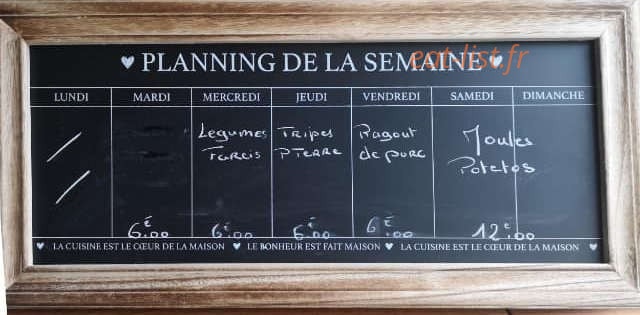 ♥ PLANNING DE LA SEMAINE ♥
eat-list.fr
LUNDI MARDI MERCREDI JEUDI VENDREDI SAMEDI DIMANCHE
Legumes Tripes Ragout Moules
Farcis P Terre de porc Potatos
6€.00 6€.00 6€.00 6€.00 12€.00
♥ LA CUISINE EST LE CŒUR DE LA MAISON ♥ LE BONHEUR EST FAIT MAISON ♥ LA CUISINE EST LE CŒUR DE LA MAISON ♥